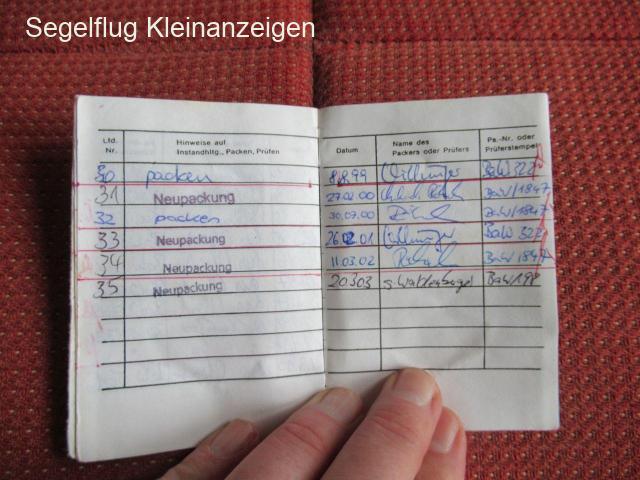 Segelflug Kleinanzeigen
Lfd. Nr. Hinweise auf Instandhltg., Packen, Prüfen Datum Name des Packers oder Prüfers Ps.-Nr. oder Prüferstempel
30 packen 8.8.99 BaW 322
31 Neupackung 27.02.00 BaW/1847
32 packen 30.07.00 BaW/1847
33 Neupackung 26.02.01 BaW 322
34 Neupackung 11.03.02 BaW/1847
35 Neupackung 200303